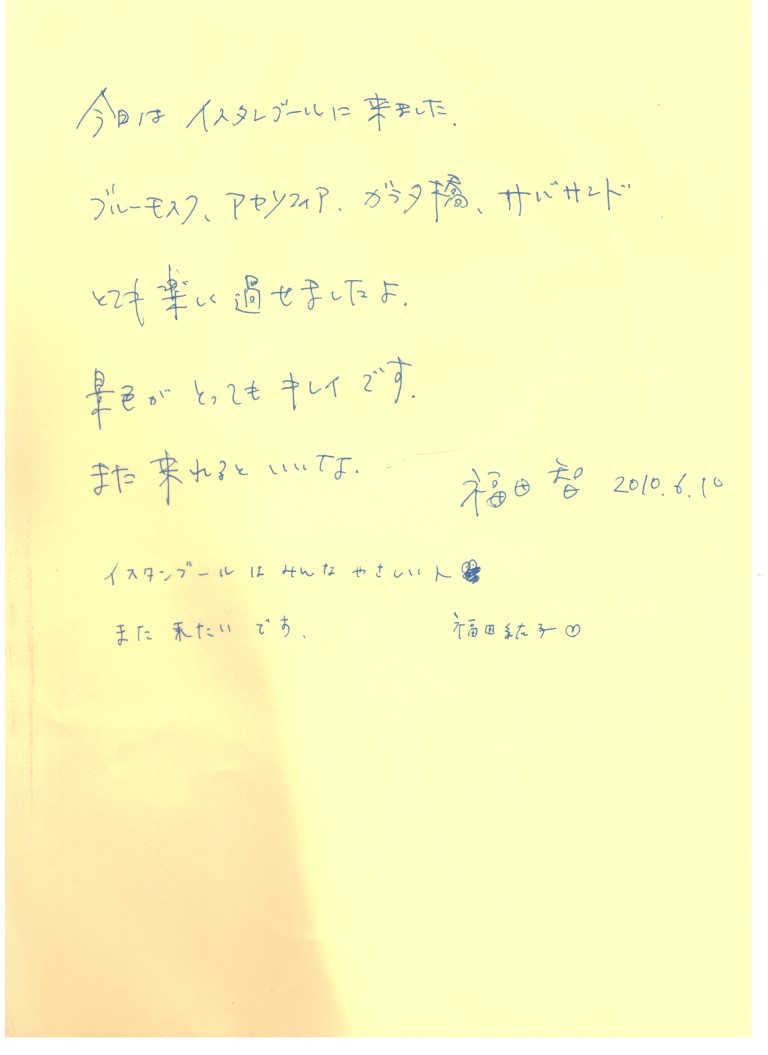 今日は イスタンブールに 来ました.
ブルーモスク、アヤソフィア、ガラタ橋、サバサンド
とても 楽しく 過せましたよ.
景色が とっても キレイ です.
また 来れると いいなぁ.
福田 智 2010.6.10
イスタンブール は みんな やさしい人
また 来たい です.
福田結子♡